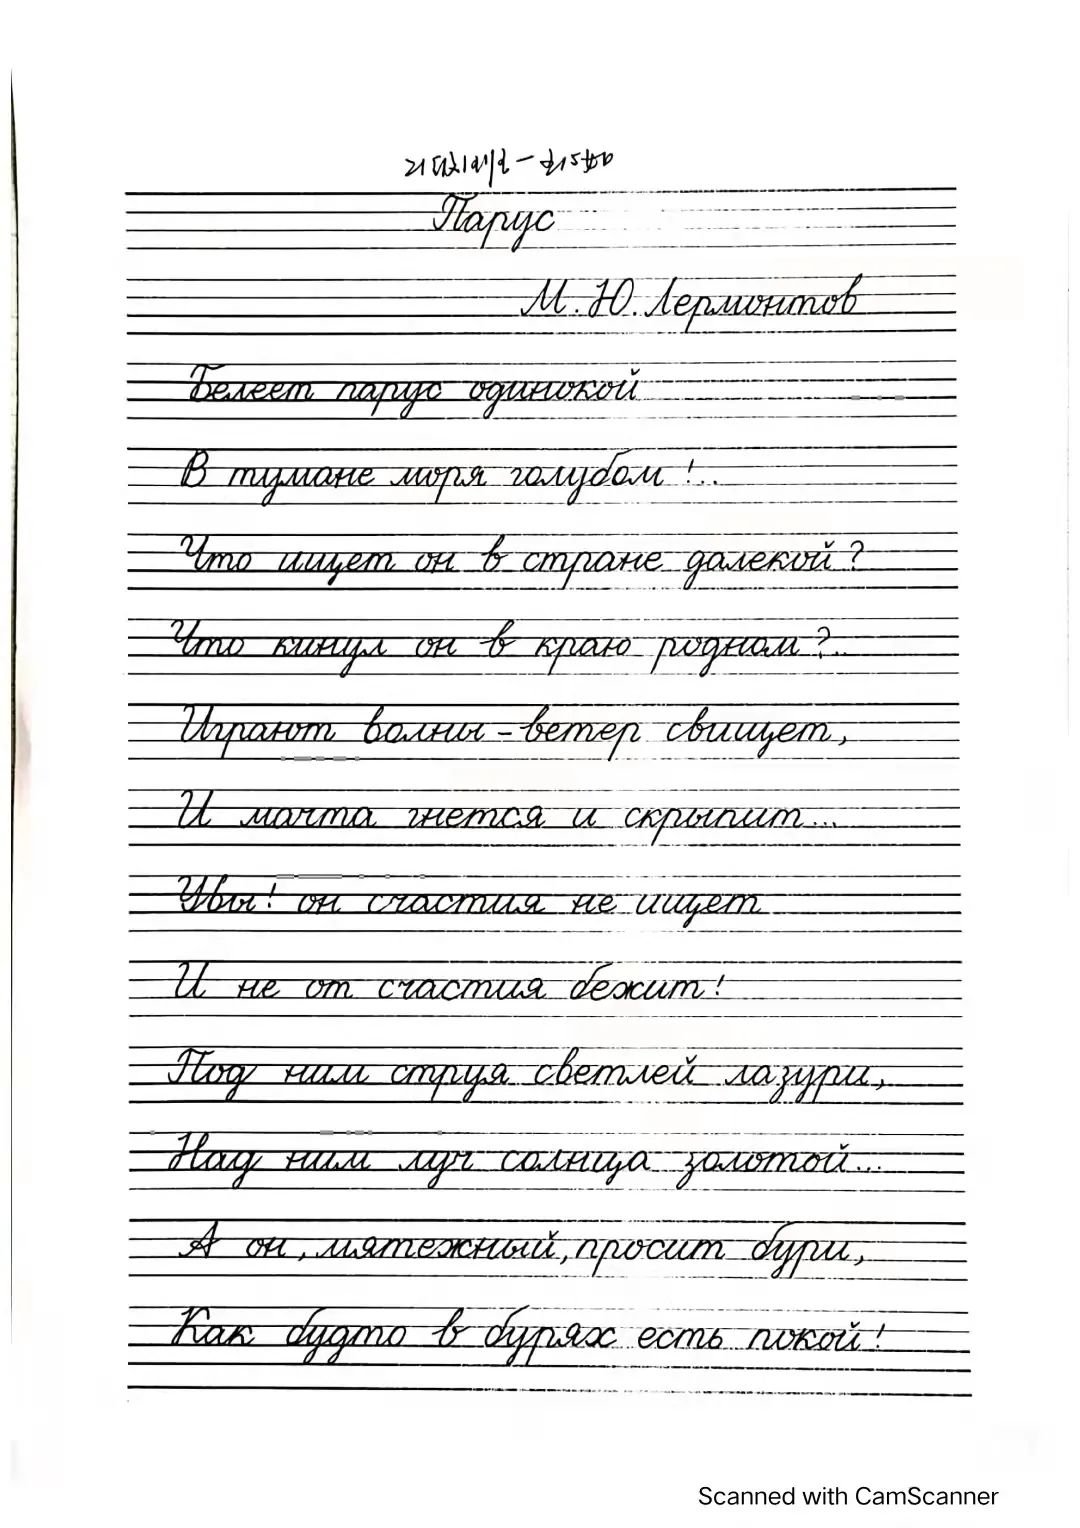 Парус
М. Ю. Лермонтов
Белеет парус одинокой
В тумане моря голубом!..
Что ищет он в стране далекой?
Что кинул он в краю родном?..
Играют волны - ветер свищет,
И мачта гнется и скрыпит...
Увы! он счастия не ищет
И не от счастия бежит!
Под ним струя светлей лазури,
Над ним луч солнца золотой...
А он, мятежный, просит бури,
Как будто в бурях есть покой!
Scanned with CamScanner